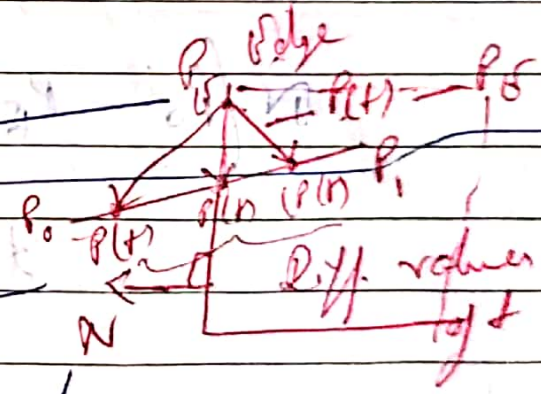 Edge
P_E P(t) P_E
P_1
P_0 P(t) P(t) P(t)
Diff. values
N of t